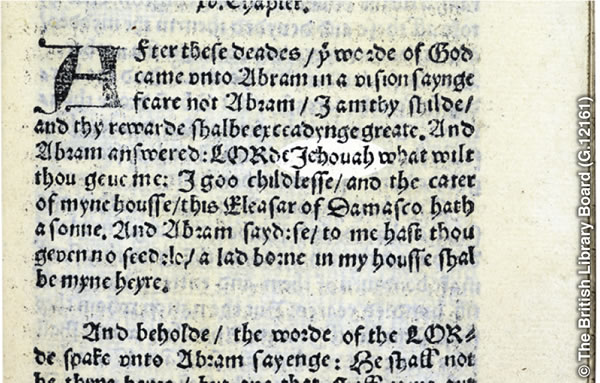 xv. Chapter.
After these deades / ẙ worde of God
came vnto Abram in a vision saynge
feare not Abram / I am thy shilde /
and thy rewarde shalbe exceadynge greate. And
Abram answered: LORde Jehouah what wilt
thou geue me: I goo childlesse / and the cater
of myne housse / this Eleasar of Damasco hath
a sonne. And Abram sayd: se / to me hast thou
geven no seed: lo / a lad borne in my housse shal
be myne heyre.
And beholde / the worde of the LOR⸗
de spake vnto Abram sayenge: He shall not
be thyne heyre / but one that
© The British Library Board (G.12161)